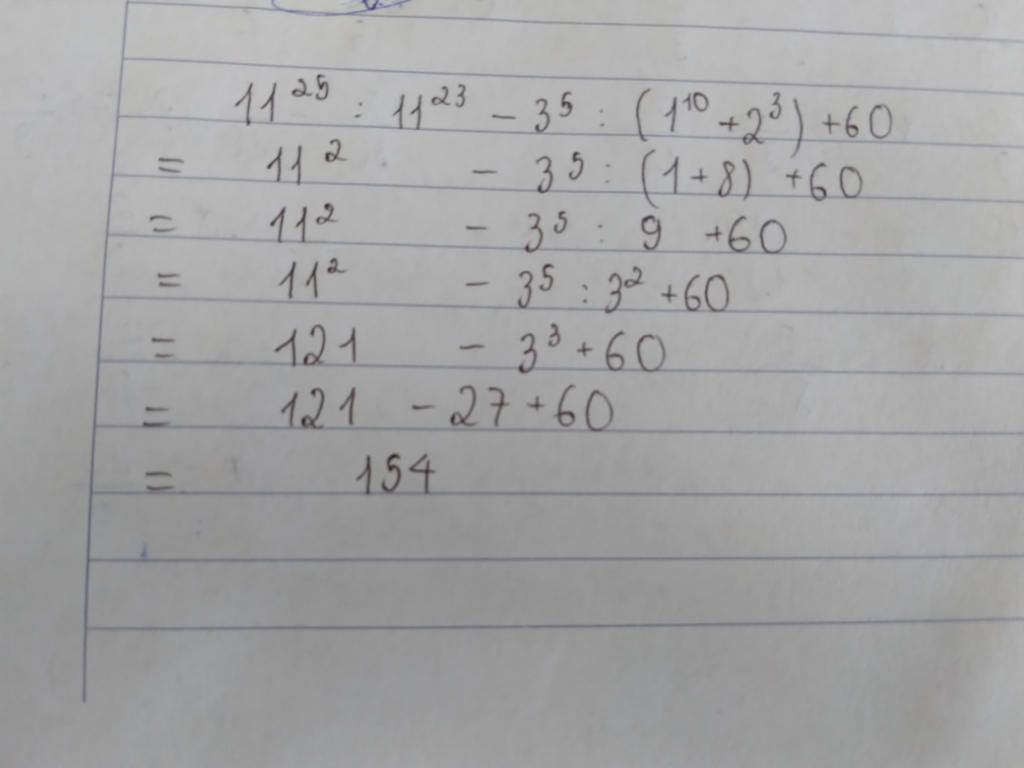 11²⁵ : 11²³ - 3⁵ : (1¹⁰ + 2³) + 60
= 11² - 3⁵ : (1 + 8) + 60
= 11² - 3⁵ : 9 + 60
= 11² - 3⁵ : 3² + 60
= 121 - 3³ + 60
= 121 - 27 + 60
= 154